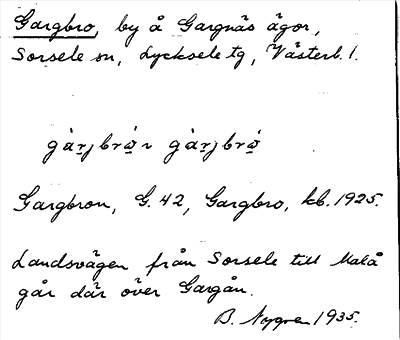 Gargbro, by å Gargnäs ägor,
Sorsele sn, Lycksele tg, Västerb. l.
gàrjbrǿn gàrjbrǿ
Gargbron, G. 42, Gargbro, kb. 1925.
Landsvägen från Sorsele till Malå
går där över Gargån.
B. Nygren 1935.